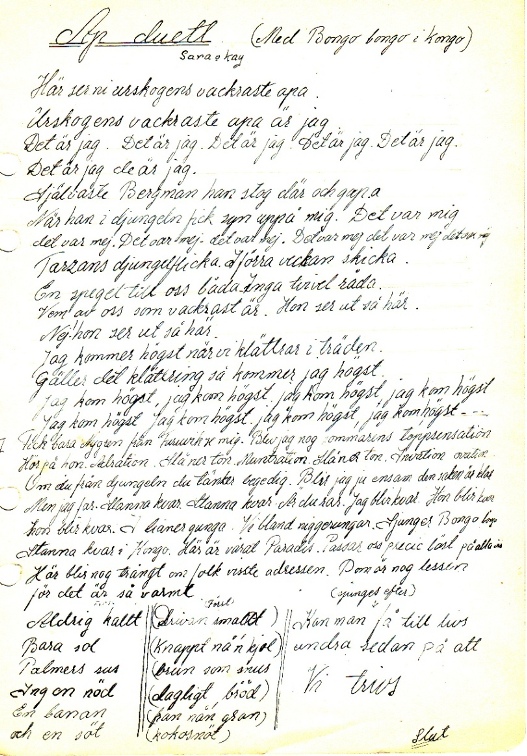 Ap duett (Med Bongo bongo i Kongo)
Sara o kay
Här ser ni urskogens vackraste apa.
Urskogens vackraste apa är jag
Det är jag. Det är jag. Det är jag. Det är jag. Det är jag.
Det är jag de är jag.
Självaste Bergman han stog där och gapa
När han i djungeln fick syn uppå mig. Det var mig
det var mej. Det var mej. det var mej. Det var mej det var mej det var mej
Tarzans djungelflicka. Förra veckan skicka.
En spegel till oss båda. Inga tvivel råda.
Vem av oss som vackrast är. Hon ser ut så här.
Nej hon ser ut så här
Jag kommer högst när vi klättrar i träden.
Gäller det klättring så kommer jag högst
Jag kom högst, jag kom högst. jag kom högst, jag kom högst
Jag kom högst Jag kom högst. jag kom högst, jag kom högst
Fick bara från mig. Blev jag nog sommarens toppsensation
Hör på hon. Slå ner ton. Slå ner ton.
Om du från djungeln du tänker Blir jag ju ensam den saken är klar
Men jag far. Stanna kvar. Stanna kvar. Jag blir kvar. Hon blir kvar
hon blir kvar. I lianer gunga. Vi bland niggerungar. Sjunger Bongo
Stanna kvar i Kongo. Här är vårat Paradis. Passar oss precis
Här blir nog trångt om folk visste adressen. Dom är nog lessen
för det är så varmt (sjunges efter)
Aldrig kallt (Driver smalt)
Bara sol (Knappt nån kjol)
Palmers sus (brun som snus
Ingen nöd (dagligt bröd)
En banan (pan nån gran)
och en söt (kokosnöt)
Kan man få till livs
undra sedan på att
Vi trivs
Slut